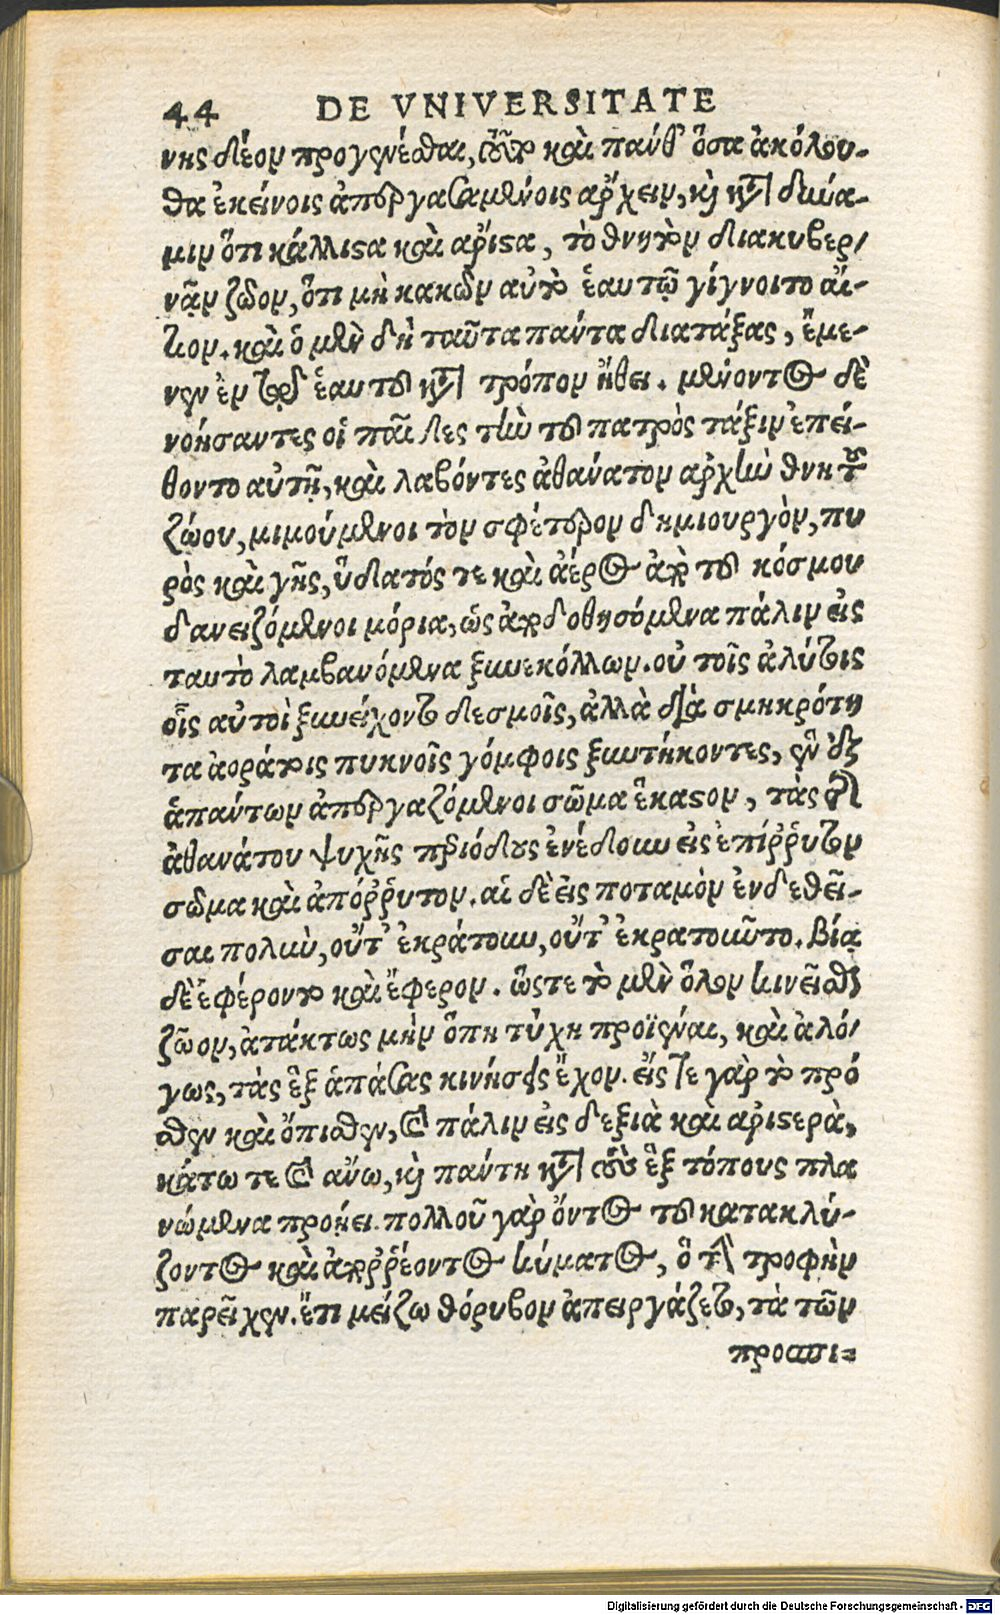 44 DE VNIVERSITATE
νης δέον προγενέσθαι, τοῦτο καὶ πάνθ' ὅσα ἀκόλου-
θα ἐκείνοις ἀπεργασαμένοις ἄρχειν, καὶ κατὰ δύνα-
μιν ὅτι κάλλιστα καὶ ἄριστα, τὸ θνητὸν διακυβερ/
νᾷν ζῶον, ὅτι μὴ κακῶν αὐτὸ ἑαυτῷ γίγνοιτο αἴ-
τιον. καὶ ὁ μὲν δὴ ταῦτα πάντα διατάξας, ἔμε-
νεν ἐν τῷ ἑαυτοῦ κατὰ τρόπον ἤθει. μένοντος δὲ
νοήσαντες οἱ παῖδες τὴν τοῦ πατρὸς τάξιν ἐπεί-
θοντο αὐτῇ, καὶ λαβόντες ἀθάνατον ἀρχὴν θνητοῦ
ζώου, μιμούμενοι τὸν σφέτερον δημιουργὸν, πυ
ρὸς καὶ γῆς, ὕδατός τε καὶ ἀέρος ἀπὸ τοῦ κόσμου
δανειζόμενοι μόρια, ὡς ἀποδοθησόμενα πάλιν εἰς
ταυτὸ λαμβανόμενα ξυνεκόλλων. οὐ τοῖς ἀλύτοις
οἷς αὐτοὶ ξυνείχοντο δεσμοῖς, ἀλλὰ διὰ σμηκρότη
τα ἀοράτοις πυκνοῖς γόμφοις ξυντήκοντες, ἓν ἐξ
ἁπάντων ἀπεργαζόμενοι σῶμα ἕκαστον, τὰς τῆς
ἀθανάτου ψυχῆς περιόδους ἐνέδουν εἰς ἐπίῤῥυτον
σῶμα καὶ ἀπόῤῥυτον. αἱ δὲ εἰς ποταμὸν ἐνδεθεῖ-
σαι πολὺν, οὔτ' ἐκράτουν, οὔτ' ἐκρατοῦντο. βίᾳ
δὲ ἐφέροντο καὶ ἔφερον. ὥστε τὸ μὲν ὅλον κινεῖσθαι
ζῶον, ἀτάκτως μὴν ὅπη τύχη προϊέναι, καὶ ἀλό/
γως, τὰς ἓξ ἁπάσας κινήσεις ἔχον. εἴς τε γὰρ τὸ πρό
σθεν καὶ ὄπισθεν, καὶ πάλιν εἰς δεξιὰ καὶ ἀριστερὰ,
κάτω τε καὶ ἄνω, καὶ πάντη κατὰ τοὺς ἓξ τόπους πλα
νώμενα προῄει. πολλοῦ γὰρ ὄντος τοῦ κατακλύ-
ζοντος καὶ ἀποῤῥέοντος κύματος, ὃ τὴν τροφὴν
παρεῖχεν. ἔτι μείζω θόρυβον ἀπειργάζετο, τὰ τῶν
προσπι=
Digitalisierung gefördert durch die Deutsche Forschungsgemeinschaft - DFG